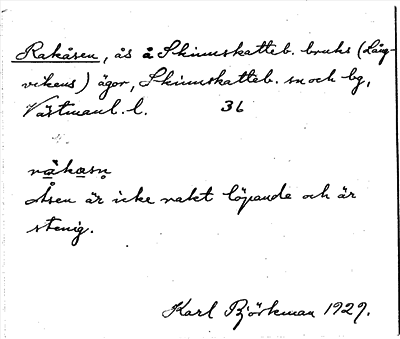 Rakåsen, ås å Skinnskatteb. bruks (Lång-
vikens) ägor, Skinnskatteb. sn och bg,
Västmanl. l. 36
råkasn
Åsen är icke rakt löpande och är
stenig.
Karl Björkman 1929.